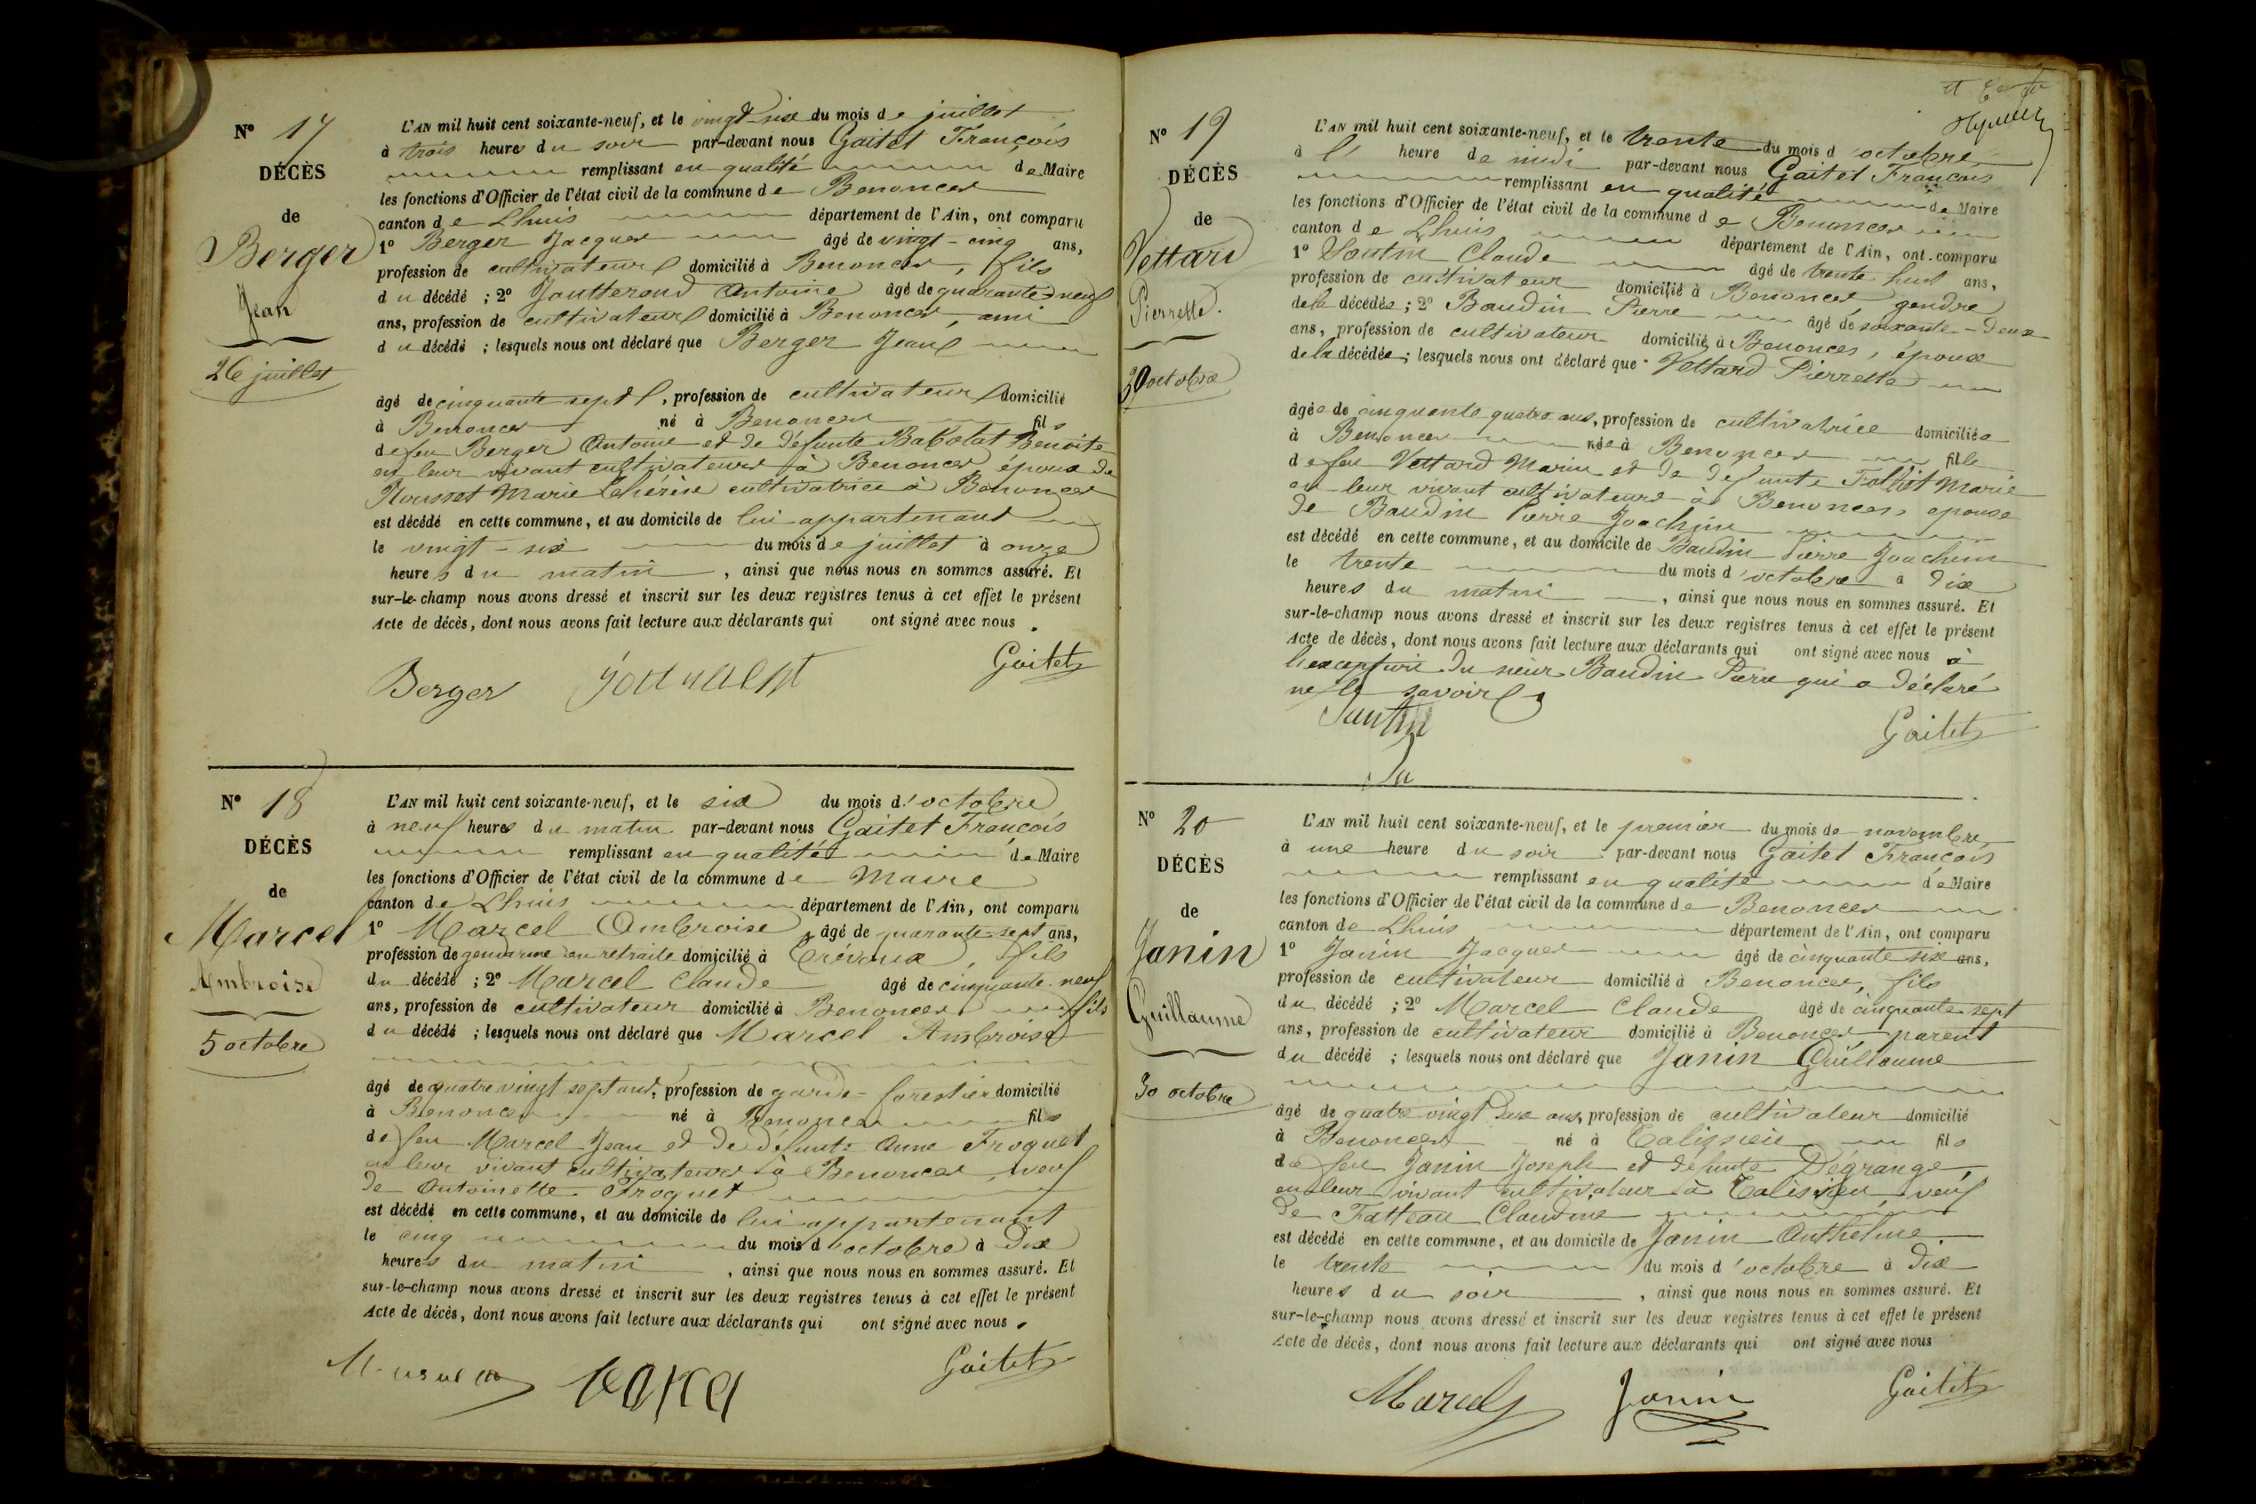 N° 17
DÉCÈS
de
Berger
Jean
26 juillet
L'AN mil huit cent soixante-neuf, et le vingt-six du mois de juillet
à trois heures du soir par-devant nous Gaitet François
remplissant en qualité de Maire
les fonctions d'Officier de l'état civil de la commune de Benonces
canton de Lhuis département de l'Ain, ont comparu
1° Berger Jacques âgé de vingt-cinq ans,
profession de cultivateur domicilié à Benonces, fils
du décédé ; 2° Joutterand Antoine âgé de quarante-neuf
ans, profession de cultivateur domicilié à Benonces, ami
du décédé ; lesquels nous ont déclaré que Berger Jean
âgé de cinquante sept, profession de cultivateur domicilié
à Benonces né à Benonces fils
de feu Berger Antoine et de défunte Babolat Benoite
en leur vivant cultivateurs à Benonces époux de
Rousset Marie Thérèse cultivatrice à Benonces
est décédé en cette commune, et au domicile de lui appartenant
le vingt-six du mois de juillet à onze
heures du matin, ainsi que nous nous en sommes assuré. Et
sur-le-champ nous avons dressé et inscrit sur les deux registres tenus à cet effet le présent
Acte de décès, dont nous avons fait lecture aux déclarants qui ont signé avec nous.
Berger Gaitet
N° 18
DÉCÈS
de
Marcel
Ambroise
5 octobre
L'AN mil huit cent soixante-neuf, et le six du mois d'octobre
à neuf heures du matin par-devant nous Gaitet François
remplissant en qualité de Maire
les fonctions d'Officier de l'état civil de la commune de Maire
canton de Lhuis département de l'Ain, ont comparu
1° Marcel Ambroise, âgé de quarante-sept ans,
profession de gendarme en retraite domicilié à Trévoux, fils
du décédé ; 2° Marcel Claude âgé de cinquante-neuf
ans, profession de cultivateur domicilié à Benonces fils
du décédé ; lesquels nous ont déclaré que Marcel Ambroise
âgé de quatre vingt sept ans, profession de garde-forestier domicilié
à Benonces né à Benonces fils
de feu Marcel Jean et de défunte Anne Froquet
en leur vivant cultivateurs à Benonces, veuf
de Antoinette Froquet
est décédé en cette commune, et au domicile de lui appartenant
le cinq du mois d'octobre à dix
heures du matin, ainsi que nous nous en sommes assuré. Et
sur-le-champ nous avons dressé et inscrit sur les deux registres tenus à cet effet le présent
Acte de décès, dont nous avons fait lecture aux déclarants qui ont signé avec nous.
Gaitet
N° 19
DÉCÈS
de
Vettard
Pierrette.
30 octobre
L'AN mil huit cent soixante-neuf, et le trente du mois d'octobre
à l' heure de midi par-devant nous Gaitet François
remplissant en qualité de Maire
les fonctions d'Officier de l'état civil de la commune de Benonces
canton de Lhuis département de l'Ain, ont comparu
1° Claude âgé de trente-huit ans,
profession de cultivateur domicilié à Benonces gendre
de la décédée ; 2° Baudin Pierre âgé de soixante-deux
ans, profession de cultivateur domicilié à Benonces, époux
de la décédée ; lesquels nous ont déclaré que Vettard Pierrette
âgée de cinquante quatre ans, profession de cultivatrice domiciliée
à Benonces née à Benonces fille
de feu Vettard Marin et de défunte Marie
en leur vivant cultivateurs à Benonces, épouse
de Baudin Pierre Joachim
est décédé en cette commune, et au domicile de Baudin Pierre Joachim
le trente du mois d'octobre à dix
heures du matin, ainsi que nous nous en sommes assuré. Et
sur-le-champ nous avons dressé et inscrit sur les deux registres tenus à cet effet le présent
Acte de décès, dont nous avons fait lecture aux déclarants qui ont signé avec nous à
du sieur Baudin Pierre qui a déclaré
ne le savoir
Gaitet
N° 20
DÉCÈS
de
Janin
Guillaume
30 octobre
L'AN mil huit cent soixante-neuf, et le premier du mois de novembre
à une heure du soir par-devant nous Gaitet François
remplissant en qualité de Maire
les fonctions d'Officier de l'état civil de la commune de Benonces
canton de Lhuis département de l'Ain, ont comparu
1° Janin Jacques âgé de cinquante-six ans,
profession de cultivateur domicilié à Benonces, fils
du décédé ; 2° Marcel Claude âgé de cinquante-sept
ans, profession de cultivateur domicilié à Benonces, parent
du décédé ; lesquels nous ont déclaré que Janin Guillaume
âgé de quatre vingt ans, profession de cultivateur domicilié
à Benonces né à Talissieu fils
de feu Janin Joseph et défunte Dégrange,
en leur vivant cultivateur à Talissieu, veuf
de Fatteau Claudine
est décédé en cette commune, et au domicile de Janin Anthelme
le trente du mois d'octobre à dix
heures du soir, ainsi que nous nous en sommes assuré. Et
sur-le-champ nous avons dressé et inscrit sur les deux registres tenus à cet effet le présent
Acte de décès, dont nous avons fait lecture aux déclarants qui ont signé avec nous
Marcel Janin Gaitet